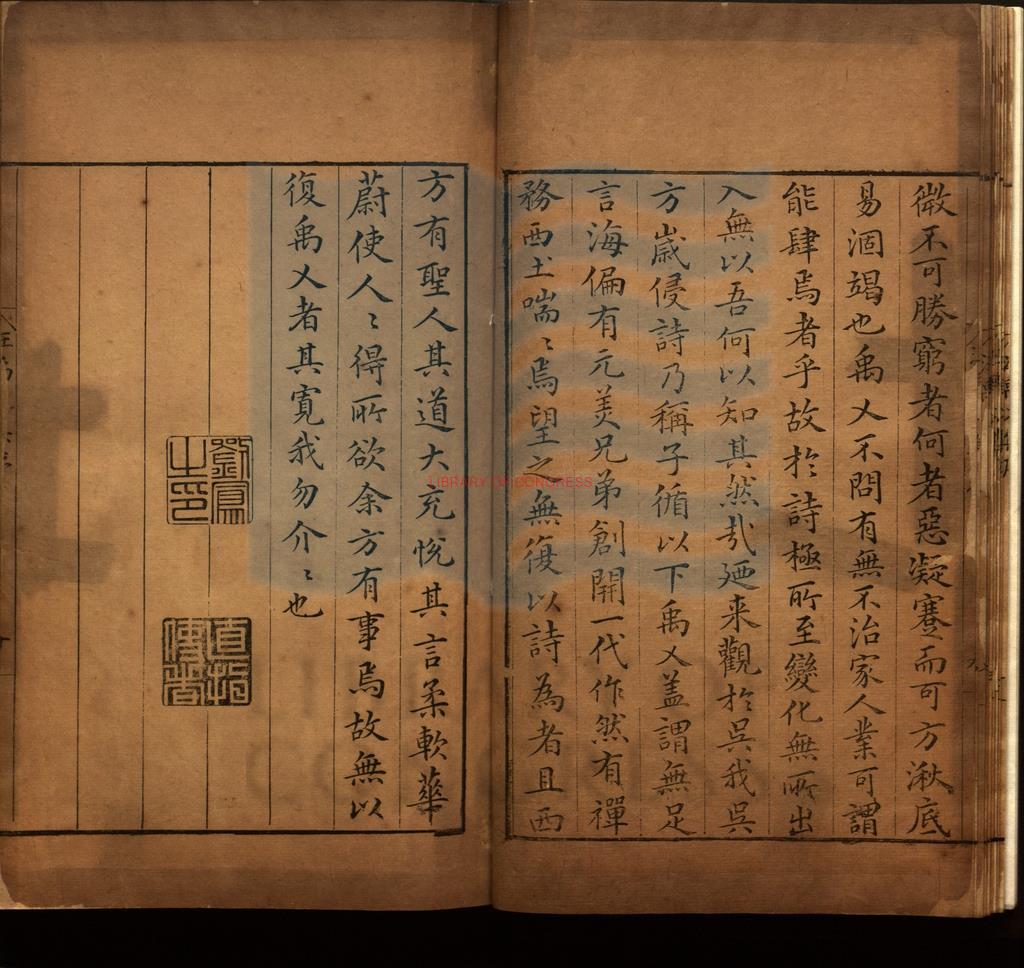 微不可勝窮者何者惡凝蹇而可方湫底
易涸竭也禹乂不問有無不治家人業可謂
能肆焉者乎故於詩極所至變化無所出
入無以吾何以知其然㢤廼来觀於吳我吳
方歲侵詩乃稱子循以下禹乂盖謂無足
言海偏有元美兄弟創開一代作然有禪
務西土喘〻焉望之無復以詩為者且西
方有聖人其道大充悅其言柔軟華
蔚使人〻得所欲余方有事焉故無以
復禹乂者其寬我勿介〻也
劉鳳之印
LIBRARY OF CONGRESS